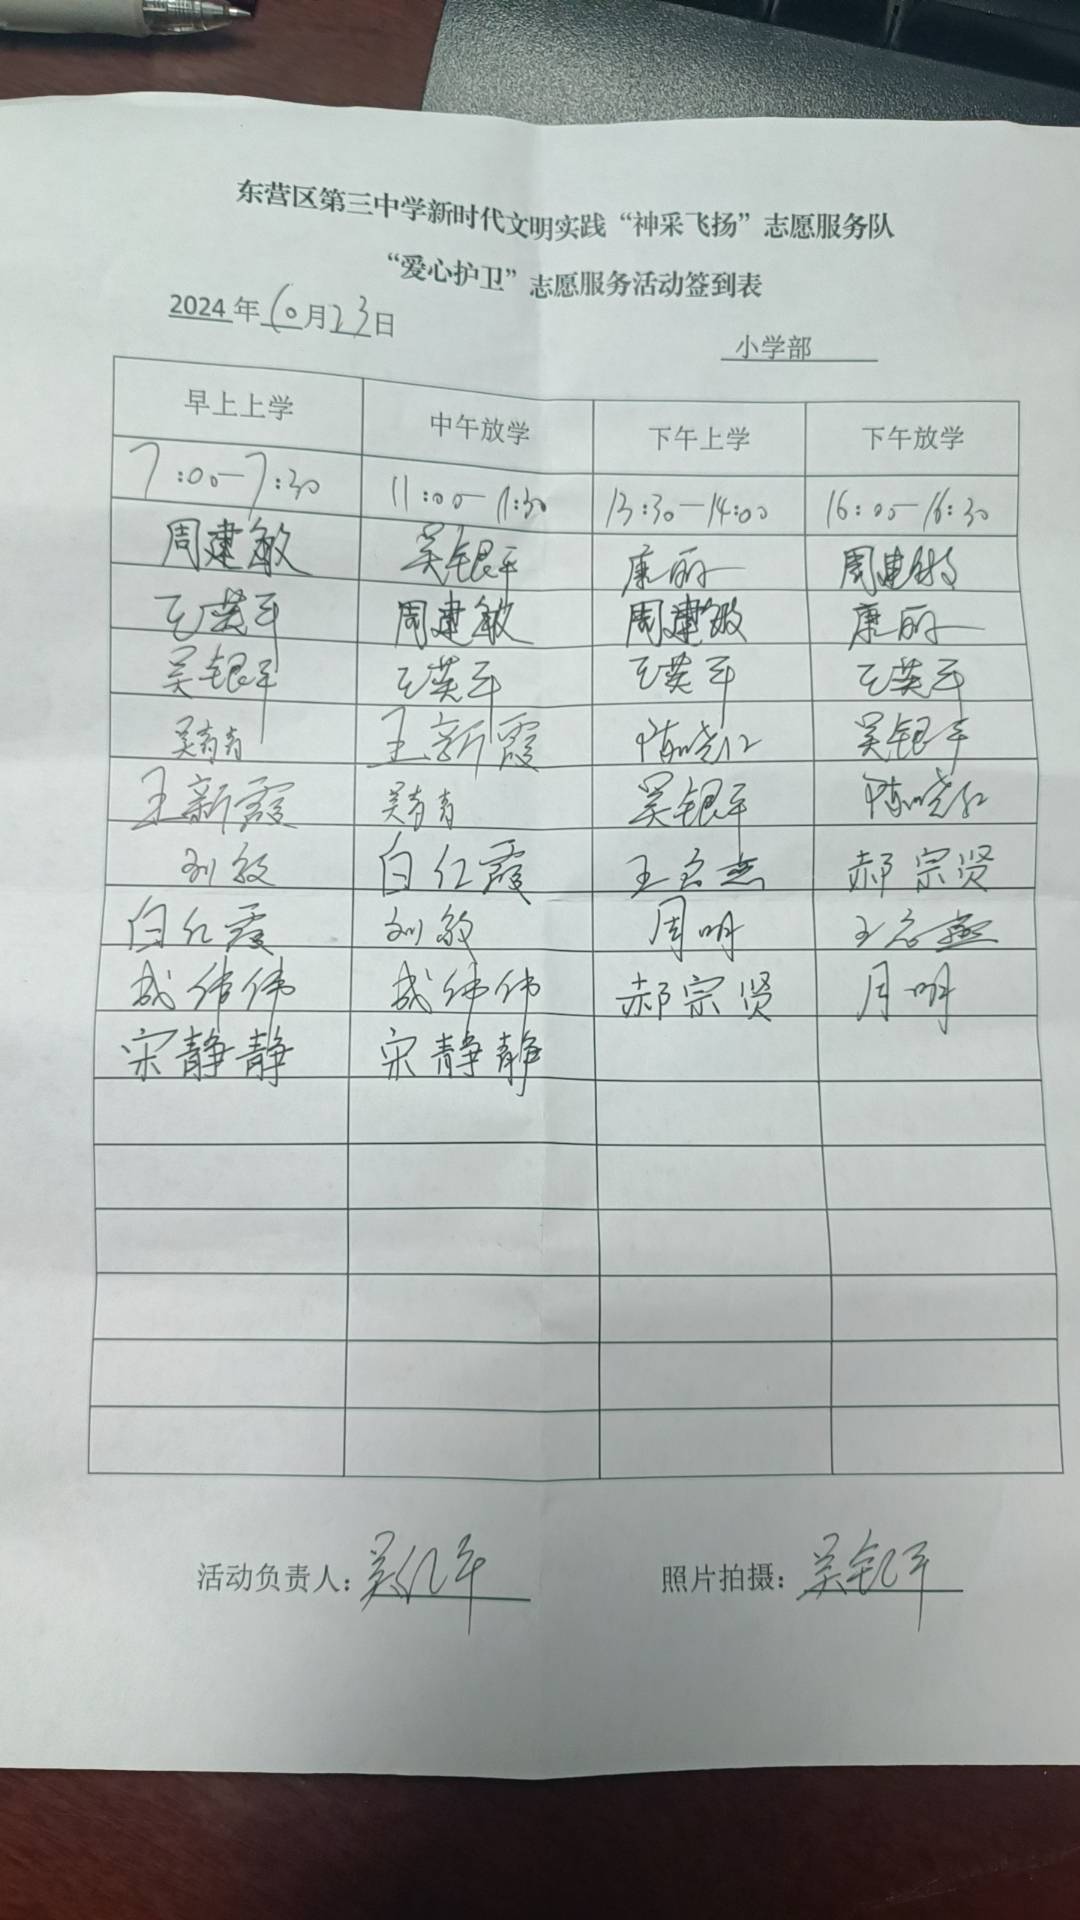 东营区第三中学新时代文明实践“神采飞扬”志愿服务队
“爱心护卫”志愿服务活动签到表
2024年10月23日
小学部
早上上学 中午放学 下午上学 下午放学
7:00-7:30 11:00-11:30 13:30-14:00 16:00-16:30
周建敏 吴银平 康丽 周建敏
王英平 周建敏 周建敏 康丽
吴银平 王英平 王英平 王英平
吴青青 王新霞 陈晓红 吴银平
王新霞 吴青青 吴银平 陈晓红
刘敏 白红霞 王志燕 郝宗贤
白红霞 刘敏 周明 王志燕
成伟伟 成伟伟 郝宗贤 周明
宋静静 宋静静
活动负责人：吴银平 照片拍摄：吴银平